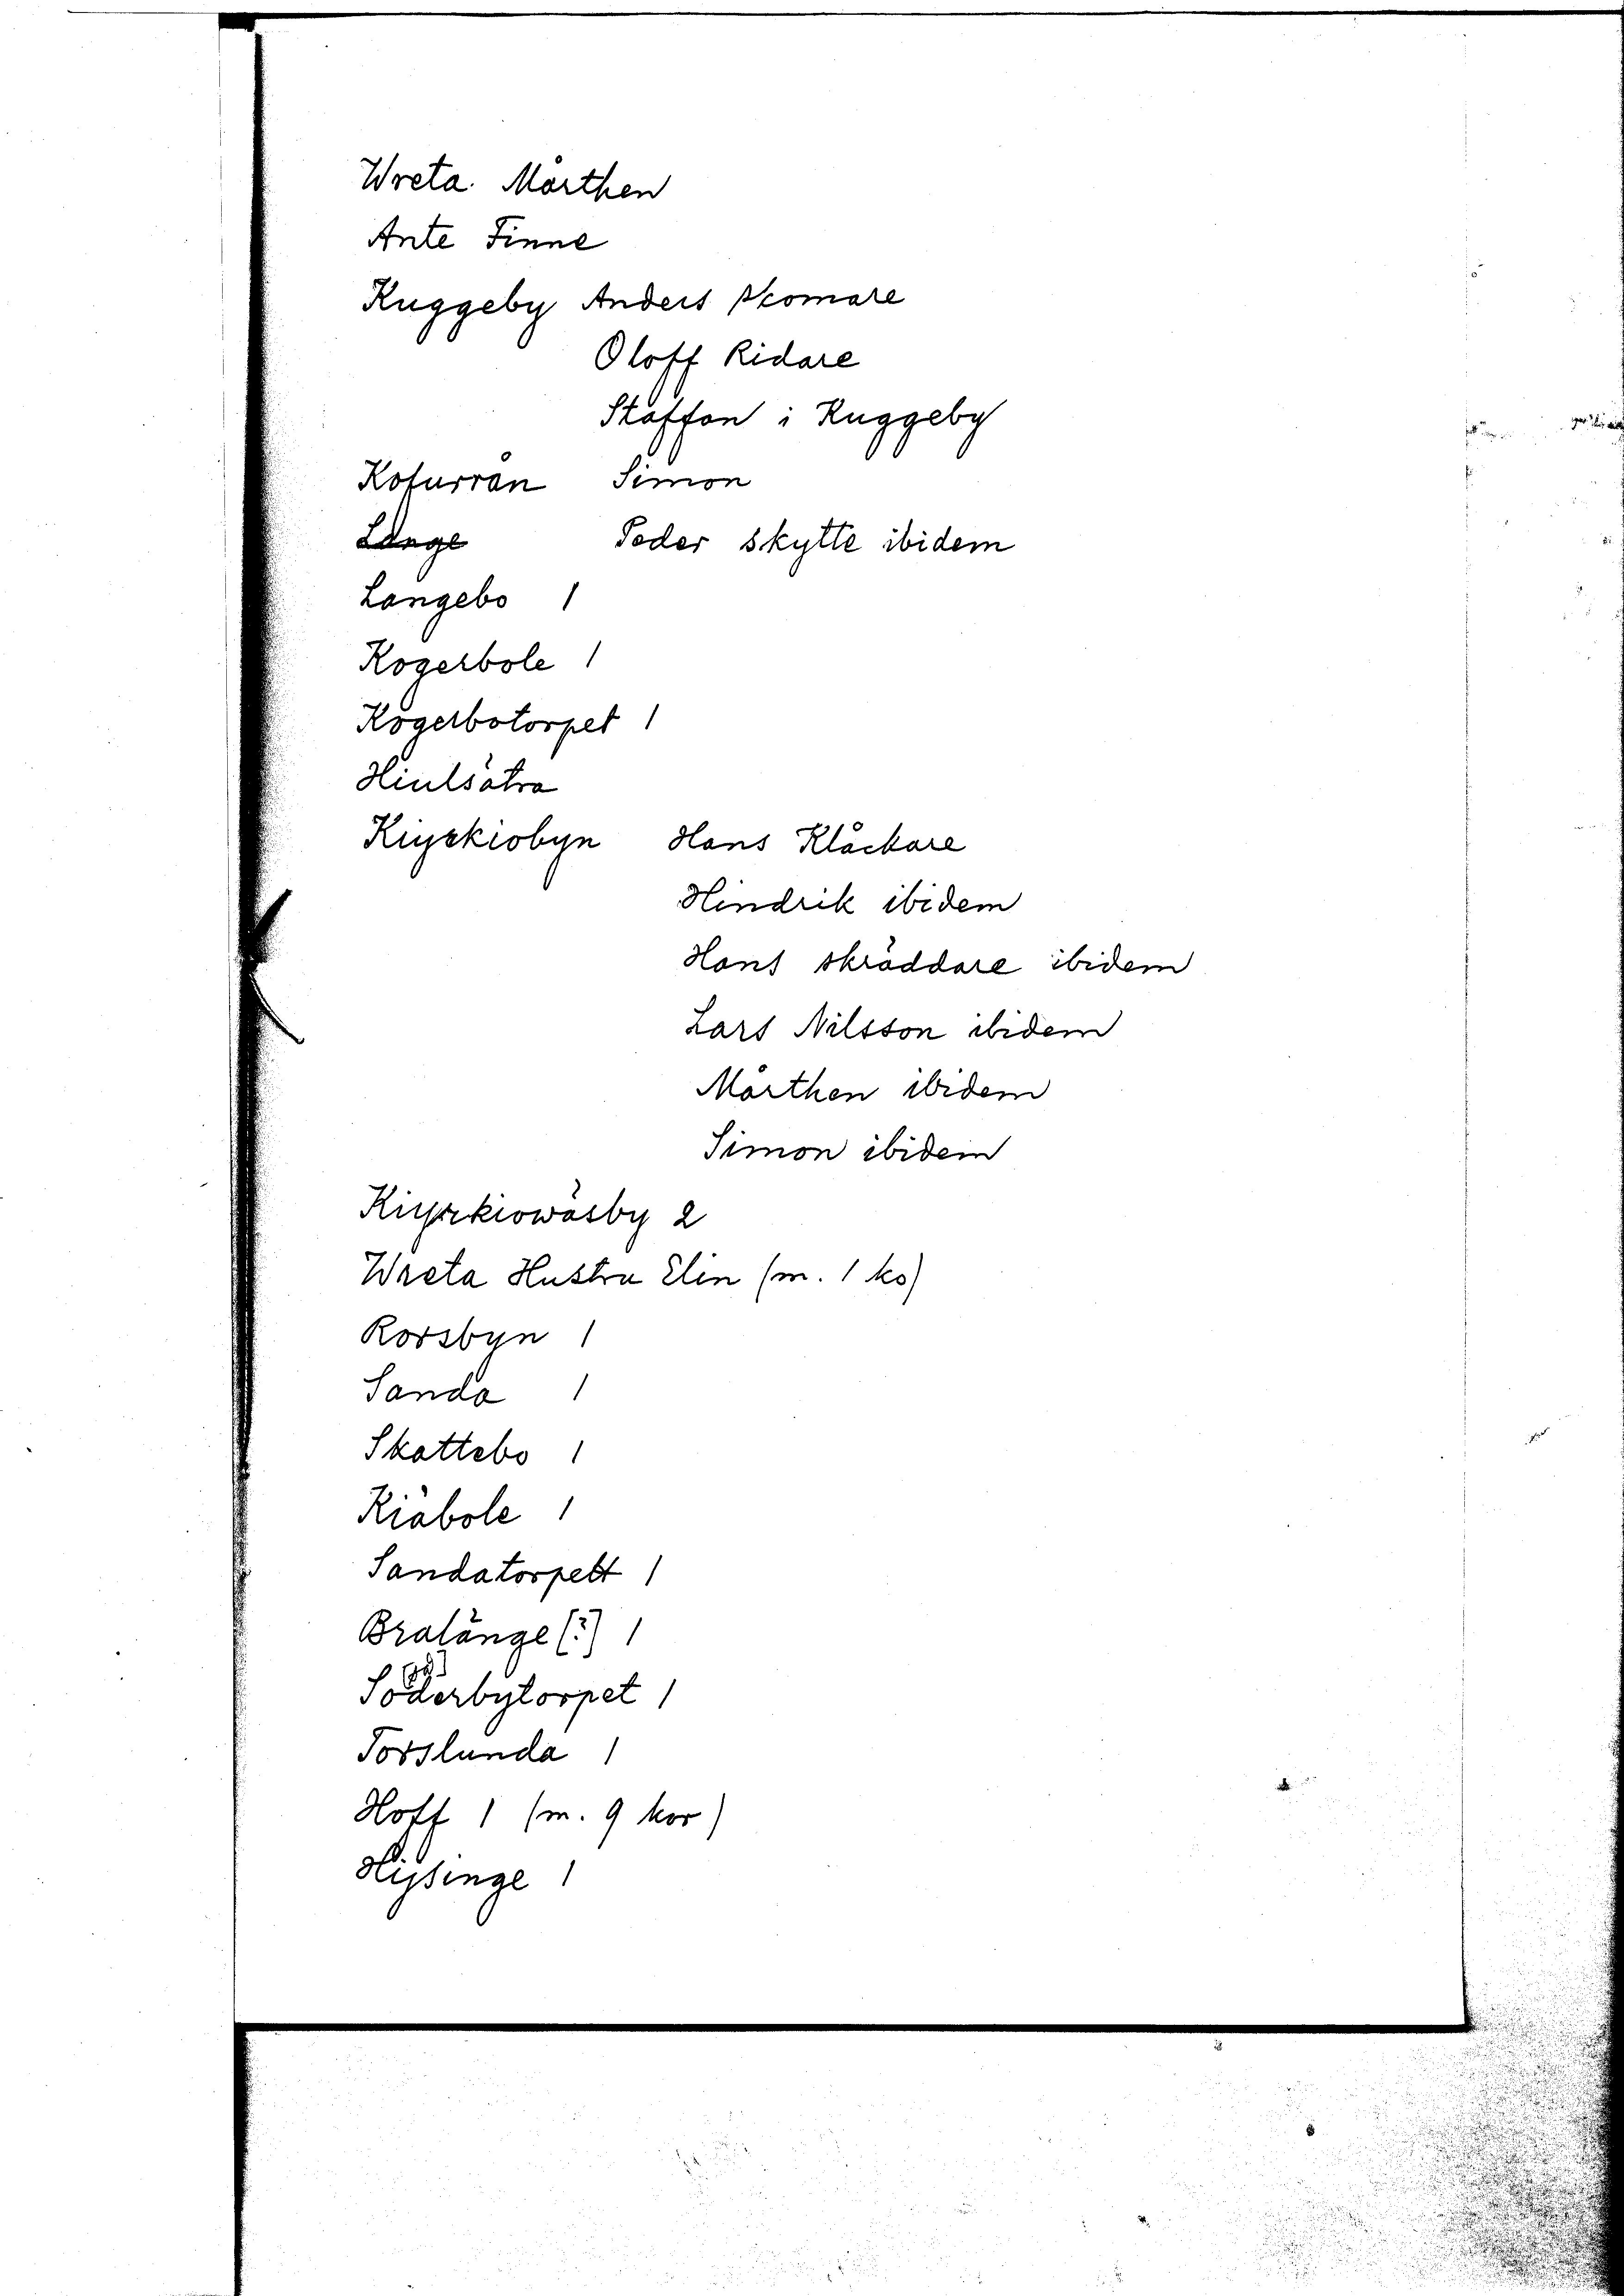 Wreta. Mårthen
Ante Finne
Kuggeby Anders skomare
Oloff Ridare
Staffan i Kuggeby
Kofurrån Simon
Länge Peder skytte ibidem
Langebo 1
Kogerbole 1
Kogerbotorpet 1
Hiulsätra
Kiyrkiobyn Hans Klåckare
Hindrik ibidem
Hans skräddare ibidem
Lars Nilsson ibidem
Mårthen ibidem
Simon ibidem
Kiyrkiowäsby 2
Wreta Hustru Elin (m. 1 ko)
Rorsbyn 1
Sanda 1
Skattebo 1
Kiäbole 1
Sandatorpett 1
Bralänge [?] 1
Söderbytorpet 1
Torslunda 1
Hoff 1 (m. 9 kor)
Hijsinge 1